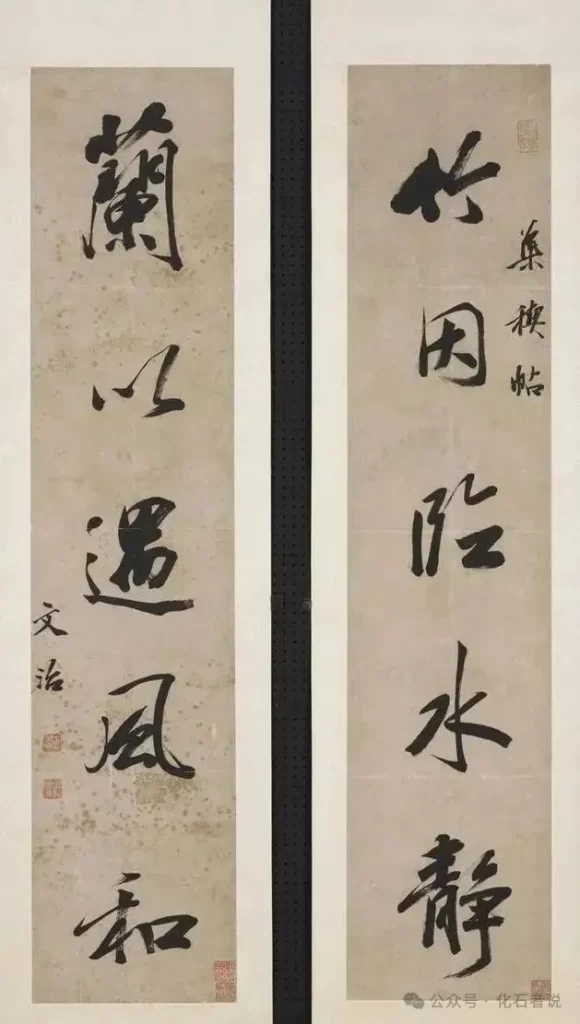 集禊帖
竹因臨水靜
蘭以遇風和
文治
公众号·化石者说